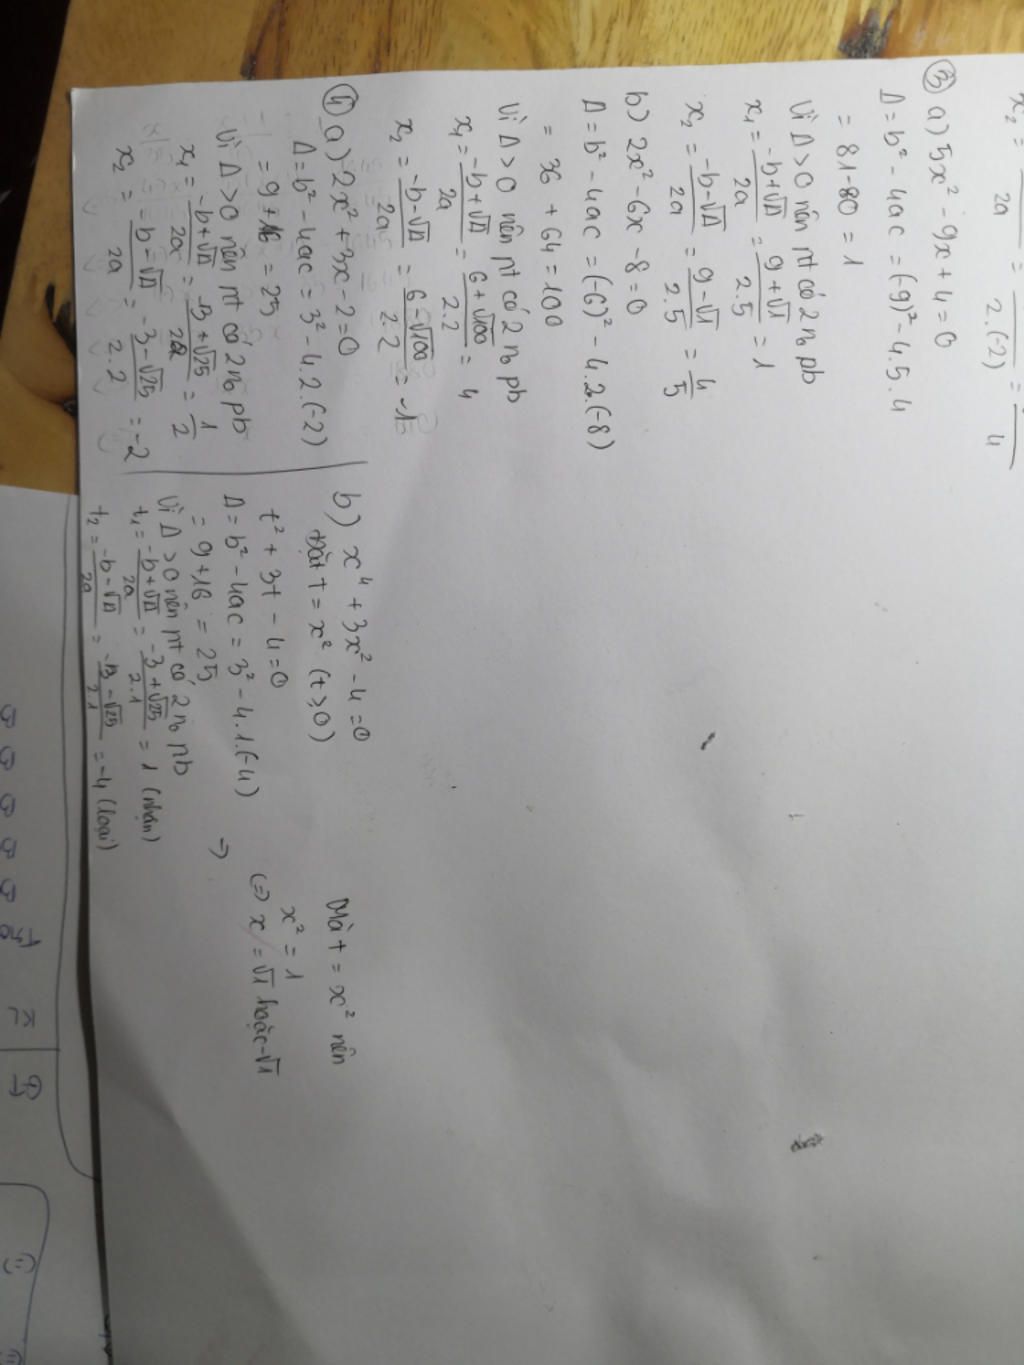 x₂ = ── = ── = ──
2a 2.(-2) 4
③ a) 5x² - 9x + 4 = 0
Δ = b² - 4ac = (-9)² - 4.5.4
= 81 - 80 = 1
Vì Δ > 0 nên pt có 2 n₀ pb
x₁ = (-b + √Δ)/2a = (9 + √1)/2.5 = 1
x₂ = (-b - √Δ)/2a = (9 - √1)/2.5 = 4/5
b) 2x² - 6x - 8 = 0
Δ = b² - 4ac = (-6)² - 4.2.(-8)
= 36 + 64 = 100
Vì Δ > 0 nên pt có 2 n₀ pb
x₁ = (-b + √Δ)/2a = (6 + √100)/2.2 = 4
x₂ = (-b - √Δ)/2a = (6 - √100)/2.2 = -1
④ a) 2x² + 3x - 2 = 0
Δ = b² - 4ac = 3² - 4.2.(-2)
= 9 + 16 = 25
Vì Δ > 0 nên pt có 2 n₀ pb
x₁ = (-b + √Δ)/2a = (-3 + √25)/2.2 = 1/2
x₂ = (-b - √Δ)/2a = (-3 - √25)/2.2 = -2
b) x⁴ + 3x² - 4 = 0
Đặt t = x² (t ≥ 0)
t² + 3t - 4 = 0
Δ = b² - 4ac = 3² - 4.1.(-4)
= 9 + 16 = 25
Vì Δ > 0 nên pt có 2 n₀ pb
t₁ = (-b + √Δ)/2a = (-3 + √25)/2.1 = 1 (nhận)
t₂ = (-b - √Δ)/2a = (-3 - √25)/2.1 = -4 (loại)
→
Mà t = x² nên
x² = 1
(=) x = √1 hoặc -√1